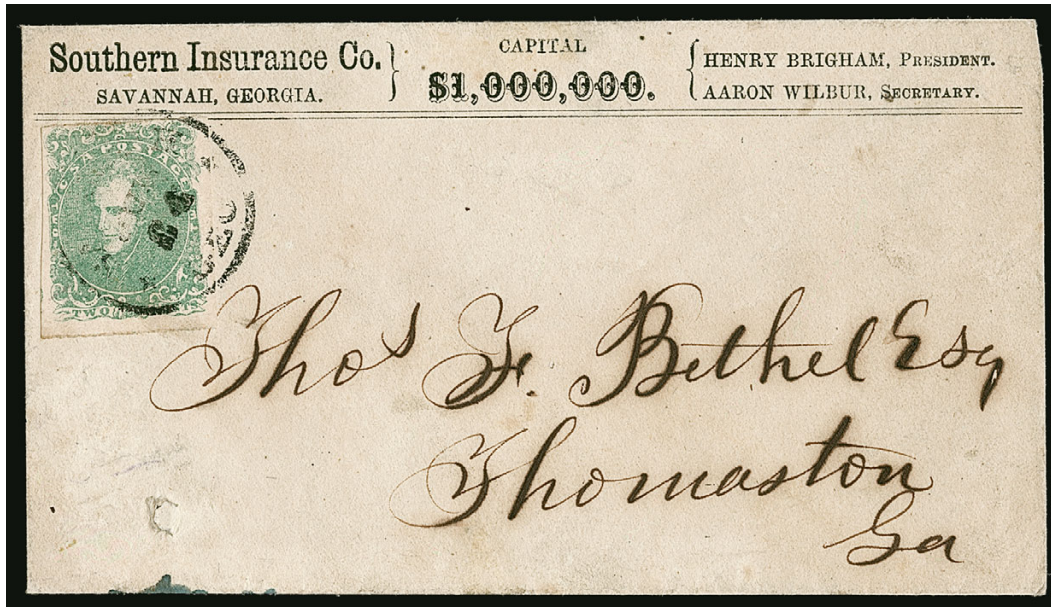 Southern Insurance Co.
SAVANNAH, GEORGIA.
CAPITAL
$1,000,000.
HENRY BRIGHAM, PRESIDENT.
AARON WILBUR, SECRETARY.
C S A POSTAGE
TWO
GEO
Thos F. Bethel Esq
Thomaston
Ga